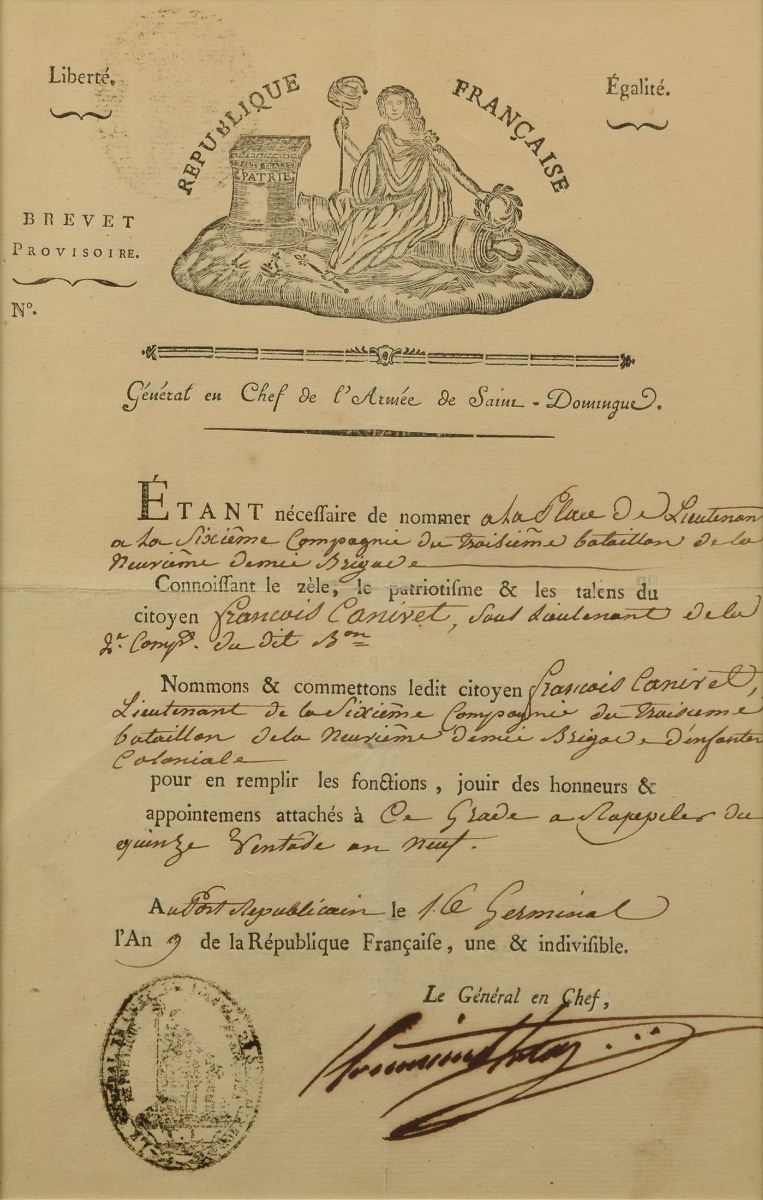 Liberté.
Égalité.
REPUBLIQUE FRANÇAISE
PATRIE
BREVET
PROVISOIRE.
N°.
Général en Chef de l'Armée de Saint-Domingue.
ÉTANT nécessaire de nommer a la Place de Lieutenan
a la Sixième Compagnie du troisième bataillon de la
Neuvième demie Brigade
Connoissant le zèle, le patriotisme & les talens du
citoyen françois Canivet, Sous Lieutenant de la
2e. Compie. du dit Bon
Nommons & commettons ledit citoyen françois Canivet,
Lieutenant de la Sixième Compagnie du troisieme
bataillon de la Neuvième demie Brigade d'infanter
Coloniale
pour en remplir les fonctions, jouir des honneurs &
appointemens attachés à Ce Grade a Rappeler du
quinze Ventose an neuf.
Au Port Republicain le 16 Germinal
l'An 9 de la République Française, une & indivisible.
Le Général en Chef,
Toussaint Louverture